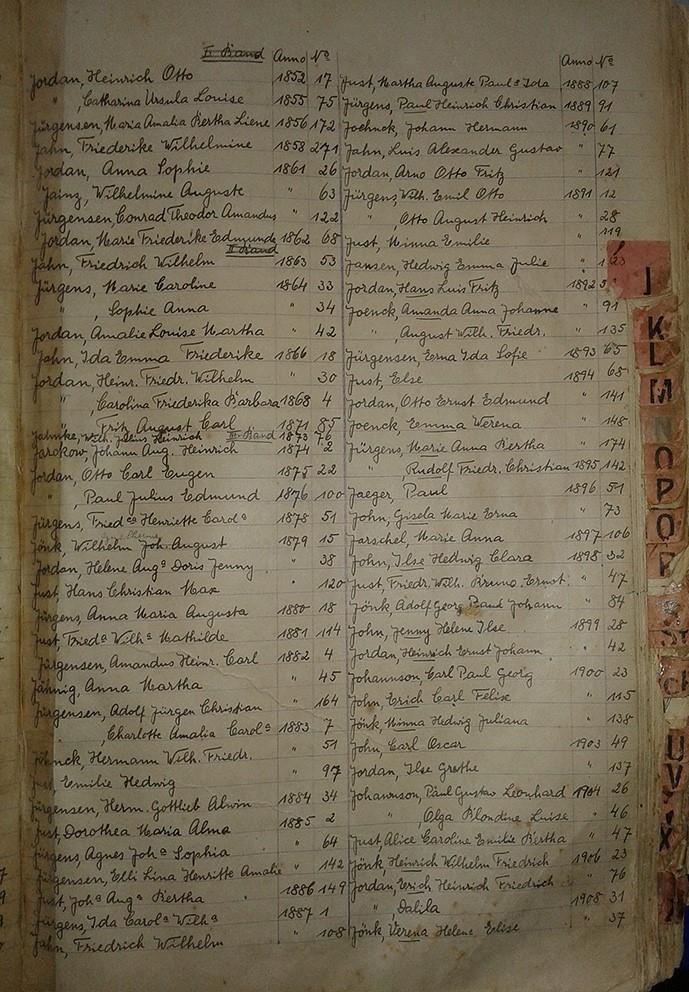 II Band Anno No
Jordan, Heinrich Otto 1852 17
" , Catharina Ursula Louise 1855 75
Jürgensen, Maria Amalia Bertha Liene 1856 172
Jahn, Friederike Wilhelmine 1858 271
Jordan, Anna Sophie 1861 26
Jainz, Wilhelmine Auguste " 63
Jürgensen, Conrad Theodor Amandus " 122
Jordan, Marie Friederike Edmunde 1862 68
II Band
Jahn, Friedrich Wilhelm 1863 53
Jürgens, Marie Caroline 1864 33
" , Sophie Anna " 34
Jordan, Amalie Louise Martha " 42
Jahn, Ida Emma Friederike 1866 18
Jordan, Heinr. Friedr. Wilhelm " 30
" , Carolina Friederika Barbara 1868 4
" Fritz August Carl 1871 85
Jahnke, Wilh. Julius Heinrich III Band 1873 76
Jarokow, Johann Aug. Heinrich 1874 2
Jordan, Otto Carl Eugen 1875 22
" , Paul Julius Edmund 1876 100
Jürgens, Friedca Henriette Carola 1878 51
Jönk, Wilhelm Joh. August 1879 15
Jordan, Helene Auga Doris Jenny " 38
Just, Hans Christian Max " 120
Jürgens, Anna Maria Augusta 1880 18
Just, Frieda Wilha Mathilde 1881 114
Jürgensen, Amandus Heinr. Carl 1882 4
Jähnig, Anna Martha " 45
Jürgensen, Adolf Jürgen Christian " 164
" , Charlotte Amalia Carola 1883 7
Jöhnck, Hermann Wilh. Friedr. " 51
Just, Emilie Hedwig " 97
Jürgensen, Herm. Gottlieb Alwin 1884 34
Just, Dorothea Maria Alma 1885 2
Jürgens, Agnes Joha Sophia " 64
Jürgensen, Elli Lina Henritte Amalie " 142
Just, Joha Auga Bertha 1886 149
Jürgens, Ida Carola Wilha 1887 1
Jahn, Friedrich Wilhelm " 108
Anno No
Just, Martha Auguste Paula Ida 1888 107
Jürgens, Paul Heinrich Christian 1889 91
Joehnck, Johann Hermann 1890 61
Jahn, Luis Alexander Gustav " 77
Jordan, Arno Otto Fritz " 121
Jürgens Wilh. Emil Otto 1891 12
" , Otto August Heinrich " 28
Just, Minna Emilie " 119
Jansen, Hedwig Emma Julie " 123
Jordan, Hans Luis Fritz 1892
Joenck, Amanda Anna Johanne " 91
" , August Wilh. Friedr. " 135
Jürgensen, Erna Ida Sofie 1893 65
Just, Else 1894 65
Jordan, Otto Ernst Edmund " 141
Joenck, Emma Werena " 148
Jürgens, Marie Anna Bertha " 174
" , Rudolf Friedr. Christian 1895 142
Jaeger, Paul 1896 51
John, Gisela Marie Erna " 73
Jarschel, Marie Anna 1897 106
John, Ilse Hedwig Clara 1898 32
Just, Friedr. Wilh. Bruno Ernst " 47
Jönk, Adolf Georg Paul Johann " 84
John, Jenny Helene Ilse 1899 28
Jordan, Heinrich Ernst Johann " 42
Johannson, Carl Paul Georg 1900 23
John, Erich Carl Felix " 115
Jönk, Minna Hedwig Juliana " 138
John, Carl Oscar 1903 49
Jordan, Ilse Grethe " 137
Johannson, Paul Gustav Leonhard 1904 26
" , Olga Blondine Luise " 46
Just Alice Caroline Emilie Bertha " 47
Jönk, Heinrich Wilhelm Friedrich 1906 23
Jordan, Erich Heinrich Friedrich " 76
" , Dalila 1908 31
Jönk, Verena Helene Elise " 37
J
K
L
M
N
O
P
Q
U
V
X